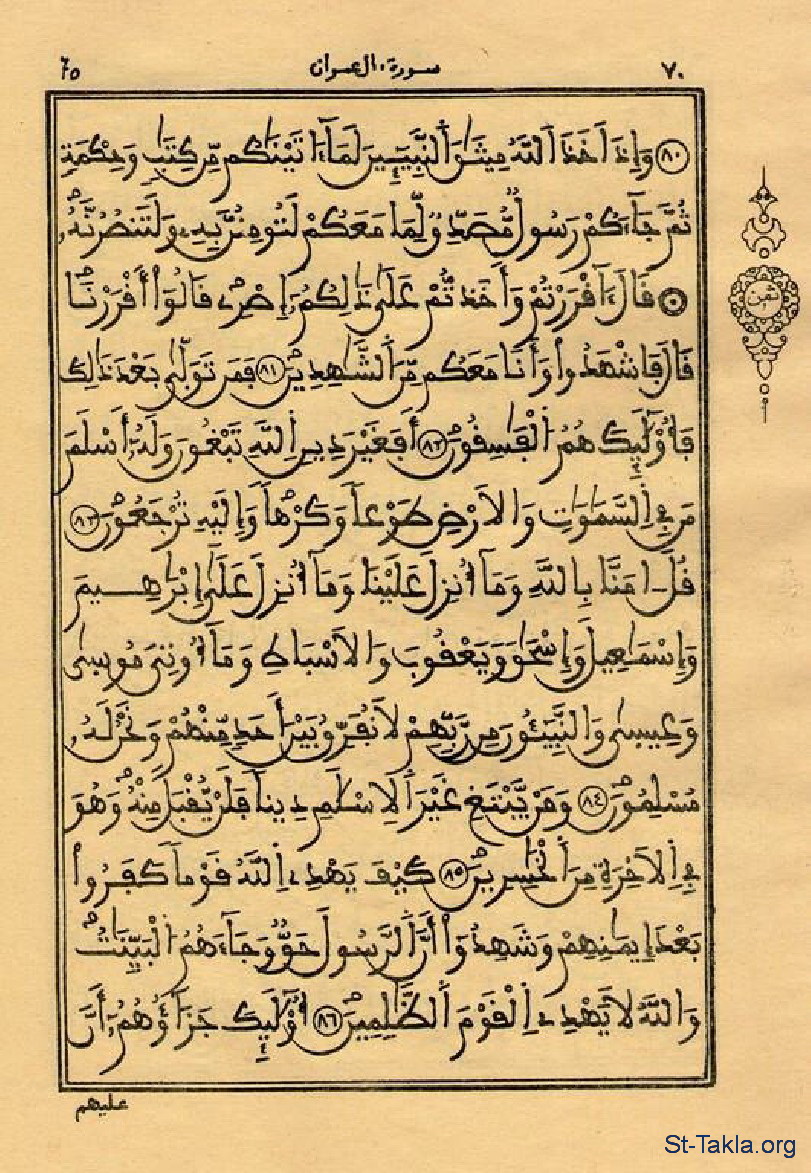 ٧٠ سورة ءال عمران ٦٥
٨٠ وَإِذَ اَخَذَ اَللَّهُ مِيثَٰقَ اَلنَّبِيٓـِٕينَ لَمَآ ءَاتَيْنَٰكُم مِّن كِتَٰبٖ وَحِكْمَةٖ
ثُمَّ جَآءَكُمْ رَسُولٞ مُّصَدِّقٞ لِّمَا مَعَكُمْ لَتُومِنُنَّ بِهِۦ وَلَتَنصُرُنَّهُۥ
قَالَ ءَآقْرَرْتُمْ وَأَخَذتُّمْ عَلَىٰ ذَٰلِكُمُۥٓ إِصْرِے قَالُوٓاْ أَقْرَرْنَا
قَالَ فَاشْهَدُواْ وَأَنَا مَعَكُم مِّنَ اَلشَّٰهِدِينَ ٨١ فَمَن تَوَلَّىٰ بَعْدَ ذَٰلِكَ
فَأُوْلَٰٓئِكَ هُمُ اُلْفَٰسِقُونَ ٨٢ أَفَغَيْرَ دِينِ اِللَّهِ تَبْغُونَ وَلَهُۥٓ أَسْلَمَ
مَن فِے اِلسَّمَٰوَٰتِ وَالَارْضِ طَوْعاٗ وَكَرْهاٗ وَإِلَيْهِ تُرْجَعُونَ ٨٣
قُلَ اٰمَنَّا بِاللَّهِ وَمَآ أُنزِلَ عَلَيْنَا وَمَآ أُنزِلَ عَلَىٰٓ إِبْرَٰهِيمَ
وَإِسْمَٰعِيلَ وَإِسْحَٰقَ وَيَعْقُوبَ وَالَاسْبَاطِ وَمَآ أُوتِيَ مُوسَىٰ
وَعِيسَىٰ وَالنَّبِيٓـُٔونَ مِن رَّبِّهِمْ لَا نُفَرِّقُ بَيْنَ أَحَدٖ مِّنْهُمْ وَنَحْنُ لَهُۥ
مُسْلِمُونَ ٨٤ وَمَنْ يَّبْتَغِ غَيْرَ اَلِاسْلَٰمِ دِيناٗ فَلَنْ يُّقْبَلَ مِنْهُ وَهُوَ
فِے اِلَاخِرَةِ مِنَ اَلْخَٰسِرِينَ ٨٥ كَيْفَ يَهْدِے اِللَّهُ قَوْماٗ كَفَرُواْ
بَعْدَ إِيمَٰنِهِمْ وَشَهِدُوٓاْ أَنَّ اَلرَّسُولَ حَقّٞ وَجَآءَهُمُ اُلْبَيِّنَٰتُ
وَاللَّهُ لَا يَهْدِے اِلْقَوْمَ اَلظَّٰلِمِينَ ٨٦ أُوْلَٰٓئِكَ جَزَآؤُهُمُۥٓ أَنَّ
عليهم
ثمن
St-Takla.org